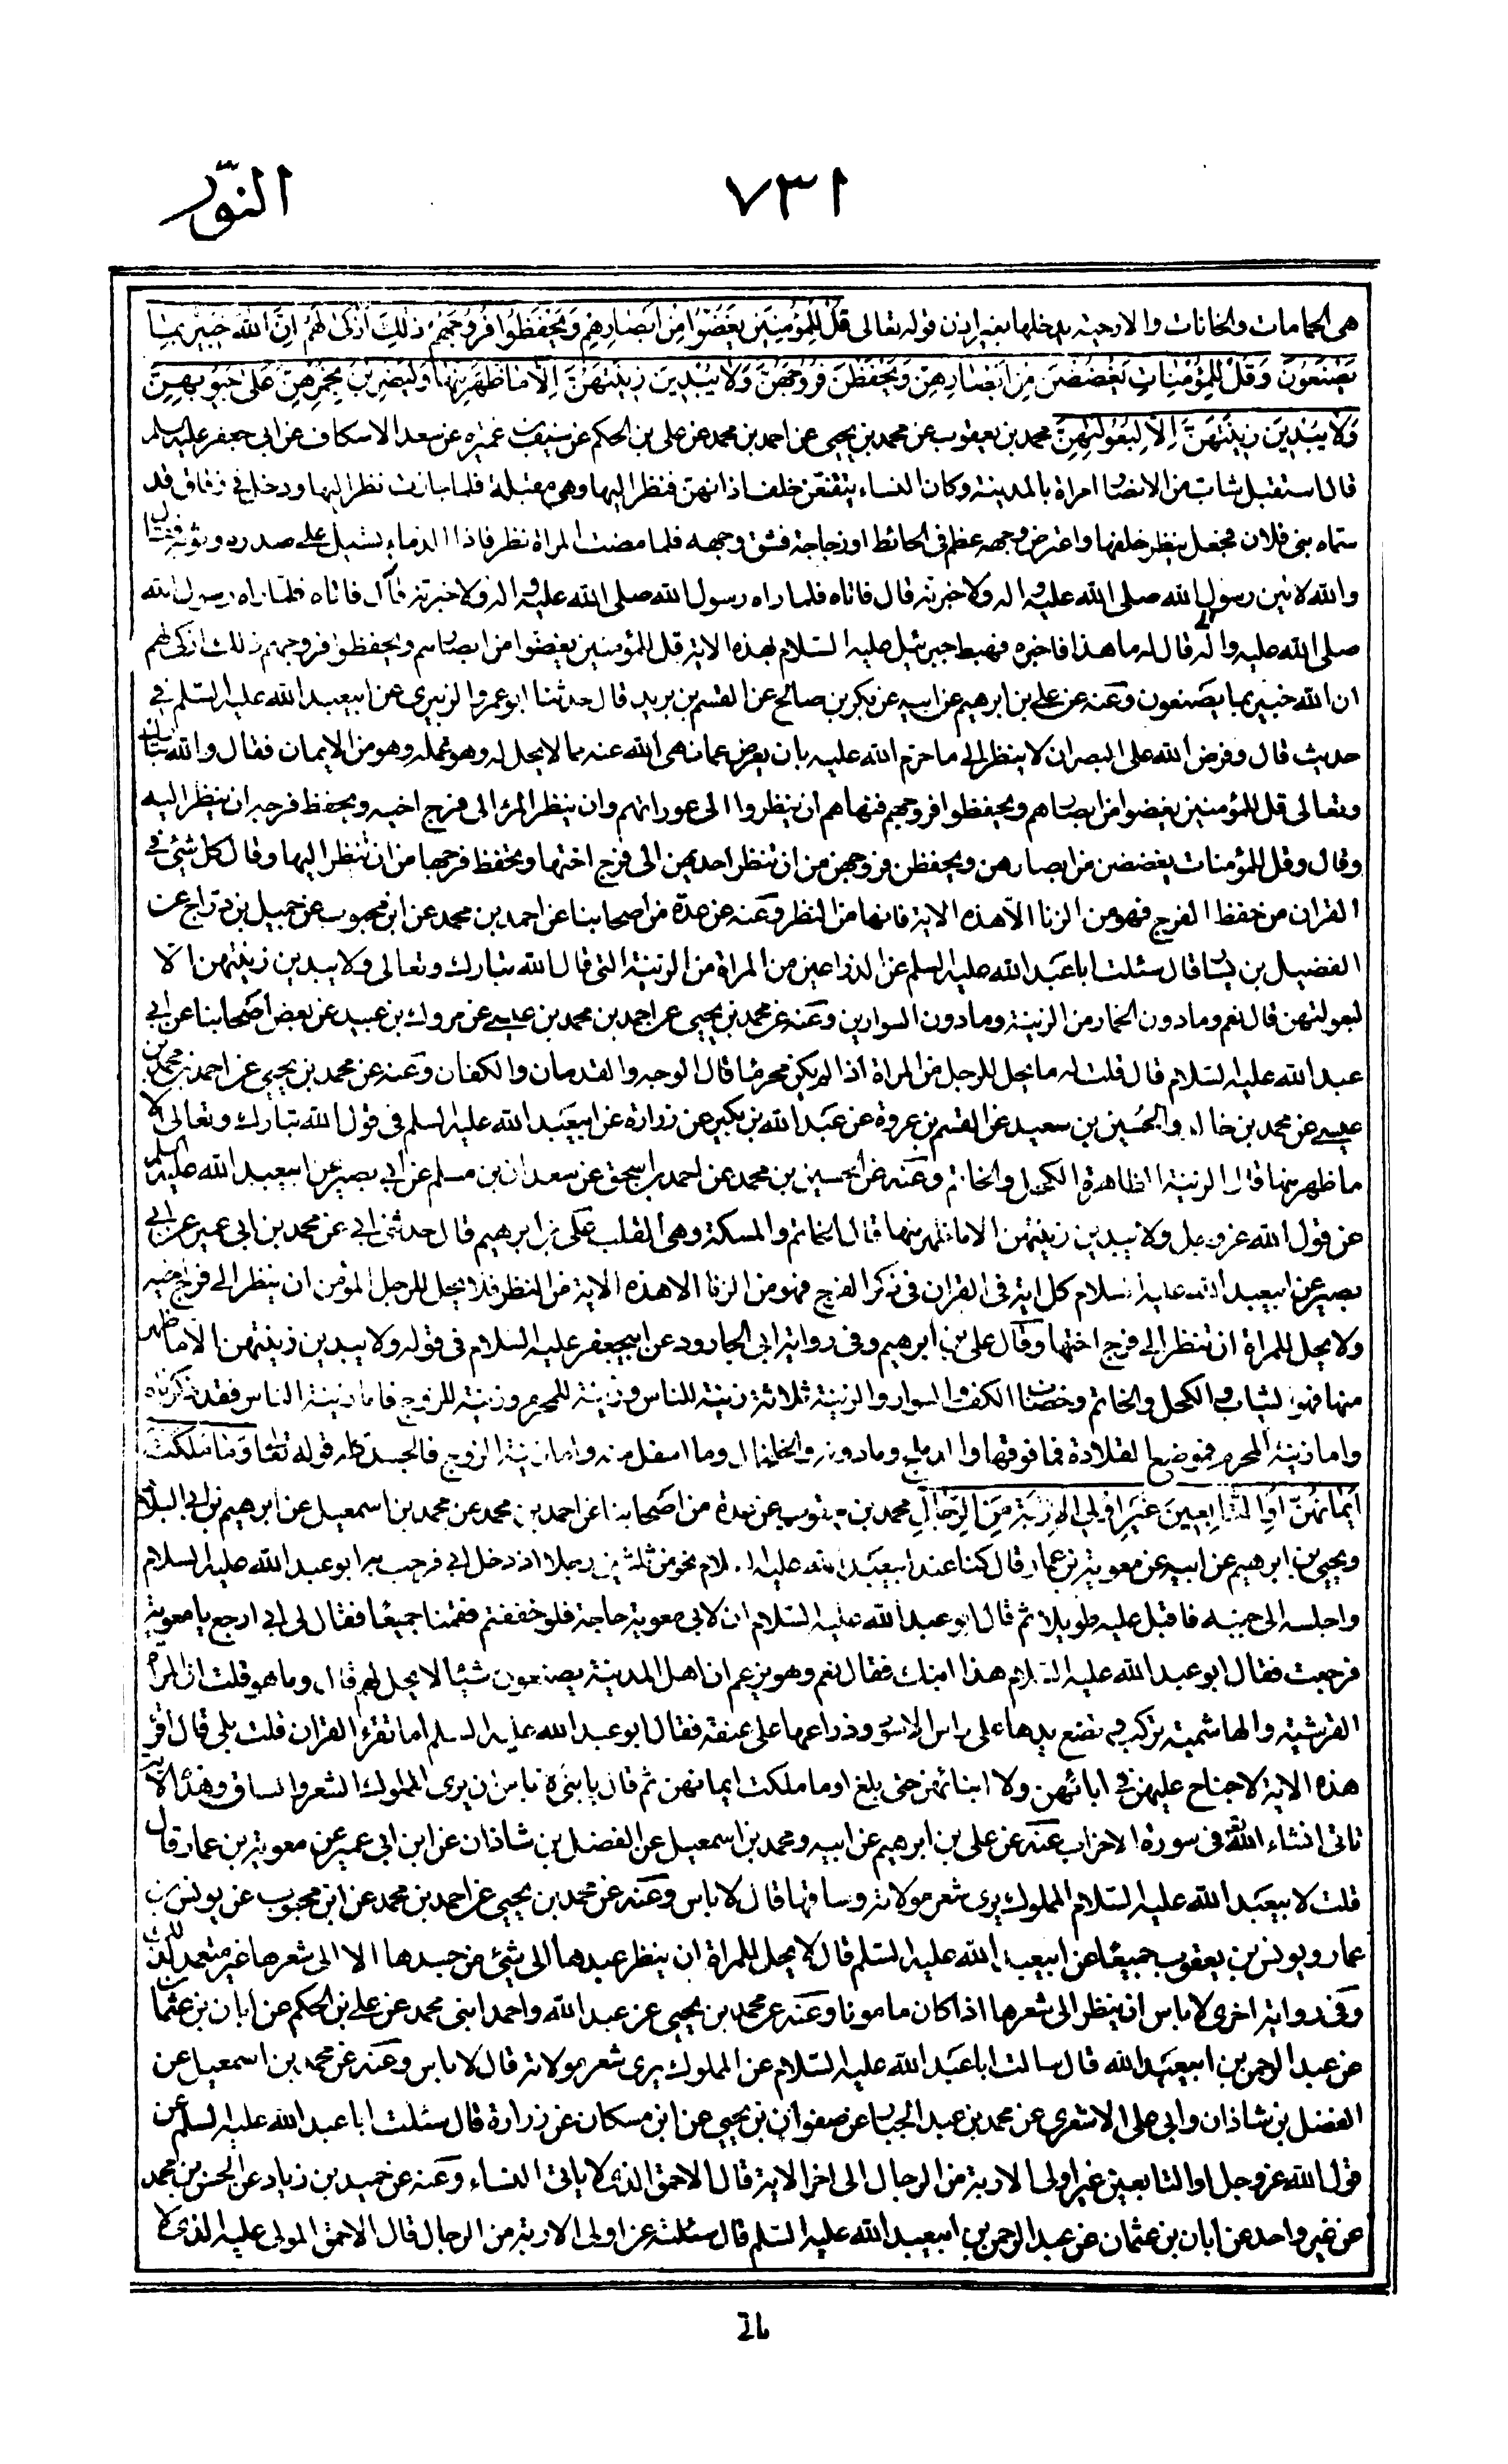 النّور
٧٣١
هى الحمامات والخانات والارحية يدخلها بغير اذن قوله تعالى قُلْ لِلْمُؤْمِنِينَ يَغُضُّوا مِنْ اَبْصَارِهِمْ وَيَحْفَظُوا فُرُوجَهُمْ ذٰلِكَ اَزْكىٰ لَهُمْ اِنَّ اللهَ خَبِيرٌ بِمٰا
يَصْنَعُونَ وَقُلْ لِلْمُؤْمِنٰاتِ يَغْضُضْنَ مِنْ اَبْصٰارِهِنَّ وَيَحْفَظْنَ فُرُوجَهُنَّ وَلاٰ يُبْدِينَ زِينَتَهُنَّ اِلاّٰ مٰا ظَهَرَ مِنْهٰا وَلْيَضْرِبْنَ بِخُمُرِهِنَّ عَلىٰ جُيُوبِهِنَّ
وَلاٰ يُبْدِينَ زِينَتَهُنَّ اِلاّٰ لِبُعُولَتِهِنَّ محمد بن يعقوب عن محمد بن يحيى عن احمد بن محمد عن على بن الحكم عن سيف بن عميره عن سعد الاسكاف عن ابى جعفر عليه السلم
قال استقبل شاب من الانصار امراة بالمدينة وكان النساء يتقنعن خلف اذانهن فنظر اليها وهى مقبلة فلما جازت نظر اليها ودخل فى زقاق قد
سماه بنى فلان فجعل ينظر خلفها واعترض وجهه عظم فى الحائط او زجاجة فشق وجهه فلما مضت المراة نظر فاذا الدماء تسيل على صدره وثوبه فقال
والله لاتين رسول الله صلى الله عليه واله ولاخبرنه قال فاتاه فلما راه رسول الله صلى الله عليه واله ولاخبرنه قال فاتاه فلما راه رسول الله
صلى الله عليه واله قال له ما هذا فاخبره فهبط جبرئيل عليه السلام بهذه الاية قل للمؤمنين يغضوا من ابصارهم ويحفظوا فروجهم ذلك ازكى لهم
ان الله خبير بما يصنعون وعنه عن على بن ابرهيم عن ابيه عن بكر بن صالح عن القسم بن بريد قال حدثنا ابو عمرو الزبيرى عن ابيعبد الله عليه السلم فى
حديث قال وفرض الله على البصر ان لا ينظر الى ما حرم الله عليه بان يعرض عما نهى الله عنه مما لا يحل له وهو عمله وهو من الايمان فقال والله تبارك
وتعالى قل للمؤمنين يغضوا من ابصارهم ويحفظوا فروجهم فنهاهم ان ينظروا الى عوراتهم وان ينظر المرء الى فرج اخيه ويحفظ فرجه ان ينظر اليه
وقال وقل للمؤمنات يغضضن من ابصارهن ويحفظن فروجهن من ان تنظر احديهن الى فرج اختها وتحفظ فرجها من ان تنظر اليها وقال كل شئ فى
القران من حفظ الفرج فهو من الزنا الا هذه الاية فانها من النظر وعنه عن عدة من اصحابنا عن احمد بن محمد عن ابن محبوب عن جميل بن دراج عن
الفضيل بن يسار قال سئلت ابا عبد الله عليه السلم عن الذراعين من المراة من الزينة التى قال الله تبارك وتعالى ولا يبدين زينتهن الا
لبعولتهن قال نعم وما دون الخمار من الزينة وما دون السوارين وعنه عن محمد بن يحيى عن احمد بن محمد بن عيسى عن مروك بن عبيد عن بعض اصحابنا عن ابى
عبد الله عليه السلام قال قلت له ما يحل للرجل من المراة اذا لم يكن محرما قال الوجه والقدمان والكفان وعنه عن محمد بن يحيى عن احمد بن محمد بن
عيسى عن محمد بن خالد والحسين بن سعيد عن القسم بن عروة عن عبد الله بن بكير عن زرارة عن ابيعبد الله عليه السلم فى قول الله تبارك وتعالى الا
ما ظهر منها قال الزينة الظاهرة الكحل والخاتم وعنه عن الحسين بن محمد عن احمد بن اسحق عن سعدان بن مسلم عن ابى بصير عن ابيعبد الله عليه السلم
عن قول الله عز وجل ولا يبدين زينتهن الا ما ظهر منها قال الخاتم والمسكة وهى القلب على بن ابرهيم قال حدثنى ابى عن محمد بن ابى عمير عن ابى
بصير عن ابيعبد الله عليه السلام كل اية فى القران فى ذكر الفرج فهو من الزنا الا هذه الاية من النظر فلا يحل للرجل المؤمن ان ينظر الى فرج اخيه
ولا يحل للمراة ان تنظر الى فرج اختها وقال على بن ابرهيم وفى رواية ابى الجارود عن ابيجعفر عليه السلام فى قوله ولا يبدين زينتهن الا ما ظهر
منها فهو الثياب والكحل والخاتم وخضاب الكف والسوار والزينة ثلاثة زينة للناس وزينة للمحرم وزينة للزوج فاما زينة الناس فقد ذكرناه
واما زينة المحرم فموضع القلادة فما فوقها والدملج وما دونه والخلخال وما اسفل منه واما زينة الزوج فالجسد كله قوله تعالى اَوْ مٰا مَلَكَتْ
اَيْمٰانُهُنَّ اَوِ التّٰابِعِينَ غَيْرِ اُولِى الاِرْبَةِ مِنَ الرِّجٰالِ محمد بن يعقوب عن عدة من اصحابنا عن احمد بن محمد عن محمد بن اسمعيل عن ابرهيم بن ابى البلاد
ويحيى بن ابرهيم عن ابيه عن معوية بن عمار قال كنا عند ابيعبد الله عليه السلام نحو من ثلثين رجلا اذ دخل ابى فرحب به ابو عبد الله عليه السلام
واجلسه الى جنبه فاقبل عليه طويلا ثم قال ابو عبد الله عليه السلام ان لابى معوية حاجة فلو خففتم فقمنا جميعا فقال لى ابى ارجع يا معوية
فرجعت فقال ابو عبد الله عليه السلام هذا ابنك فقال نعم وهو يزعم ان اهل المدينة يصنعون شيئا لا يحل لهم قال وما هو قلت ان المراة
القرشية والهاشمية تركب وتضع يدها على راس الاسود وذراعها على عنقه فقال ابو عبد الله عليه السلم اما تقرء القران قلت بلى قال اقرء
هذه الاية لا جناح عليهن فى ابائهن ولا ابنائهن حتى بلغ او ما ملكت ايمانهن ثم قال يا بنى لا باس ان يرى المملوك الشعر والساق وهذه الاية
تاتى انشاء الله تع فى سورة الاحزاب عنه عن على بن ابرهيم عن ابيه ومحمد بن اسمعيل عن الفضل بن شاذان عن ابن ابى عمير عن معوية بن عمار قال
قلت لابيعبد الله عليه السلام المملوك يرى شعر مولاته وساقها قال لا باس وعنه عن محمد بن يحيى عن احمد بن محمد عن ابن محبوب عن يونس بن
عمار ويونس بن يعقوب جميعا عن ابيعبد الله عليه السلم قال لا يحل للمراة ان ينظر عبدها الى شئ من جسدها الا الى شعرها غير متعمد لذلك
وفى رواية اخرى لا باس ان ينظر الى شعرها اذا كان مامونا وعنه عن محمد بن يحيى عن عبد الله واحمد ابنى محمد عن على بن الحكم عن ابان بن عثمان
عن عبد الرحمن بن ابيعبد الله قال سالت ابا عبد الله عليه السلام عن المملوك يرى شعر مولاته قال لا باس وعنه عن محمد بن اسمعيل عن
الفضل بن شاذان وابى على الاشعرى عن محمد بن عبد الجبار عن صفوان بن يحيى عن ابن مسكان عن زرارة قال سئلت ابا عبد الله عليه السلم عن
قول الله عز وجل او التابعين غير اولى الاربة من الرجال الى اخر الاية قال الاحمق الذى لا ياتى النساء وعنه عن حميد بن زياد عن الحسن بن محمد
عن غير واحد عن ابان بن عثمان عن عبد الرحمن بن ابيعبد الله عليه السلم قال سئلته عن اولى الاربة من الرجال قال الاحمق المولى عليه الذى لا